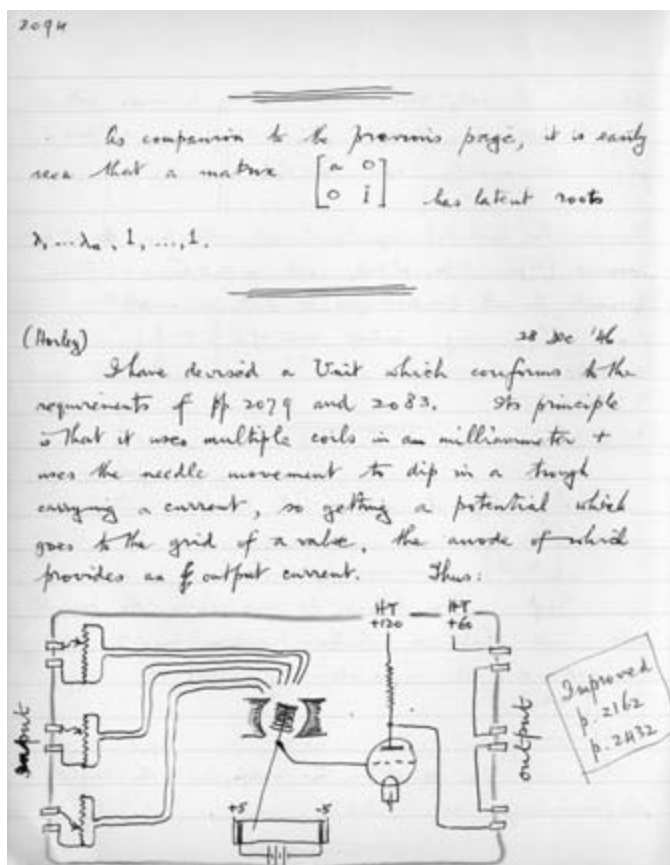 2094
As companion to the previous page, it is easily
seen that a matrix [a 0
0 1] has latent roots
λ, ... λn, 1, ..., 1.
28 Dec '46
I have devised a Unit which conforms to the
requirements of pp 2079 and 2083. Its principle
is that it uses multiple coils in a milliammeter +
uses the needle movement to dip in a trough
carrying a current, so getting a potential which
goes to the grid of a valve, the anode of which
provides an output current. Thus:
HT HT
+120 +60
input
output
Improved
p. 2162
p. 2432
+5 -5